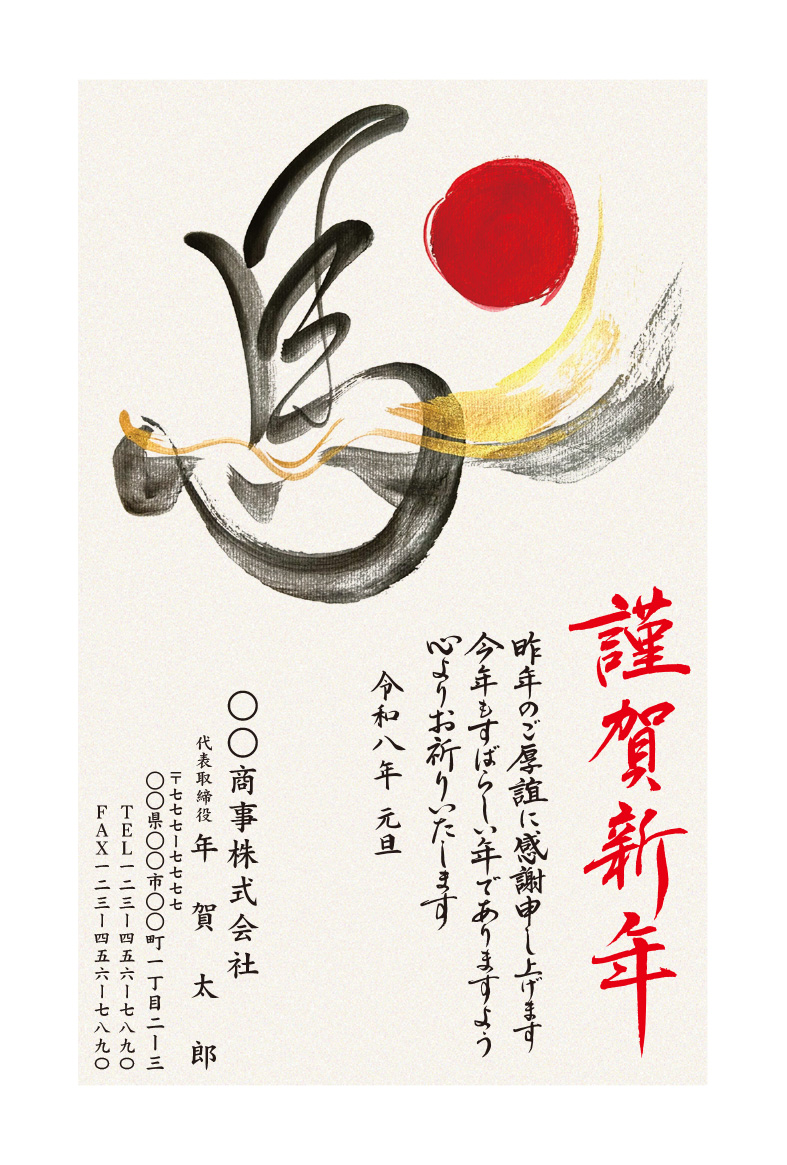 馬
謹賀新年
昨年のご厚誼に感謝申し上げます
今年もすばらしい年でありますよう
心よりお祈りいたします
令和八年 元旦
〇〇商事株式会社
代表取締役 年賀太郎
〒七七七ー七七七七
〇〇県〇〇市〇〇町一丁目二ー三
TEL一二三ー四五六ー七八九〇
FAX一二三ー四五六ー七八九〇